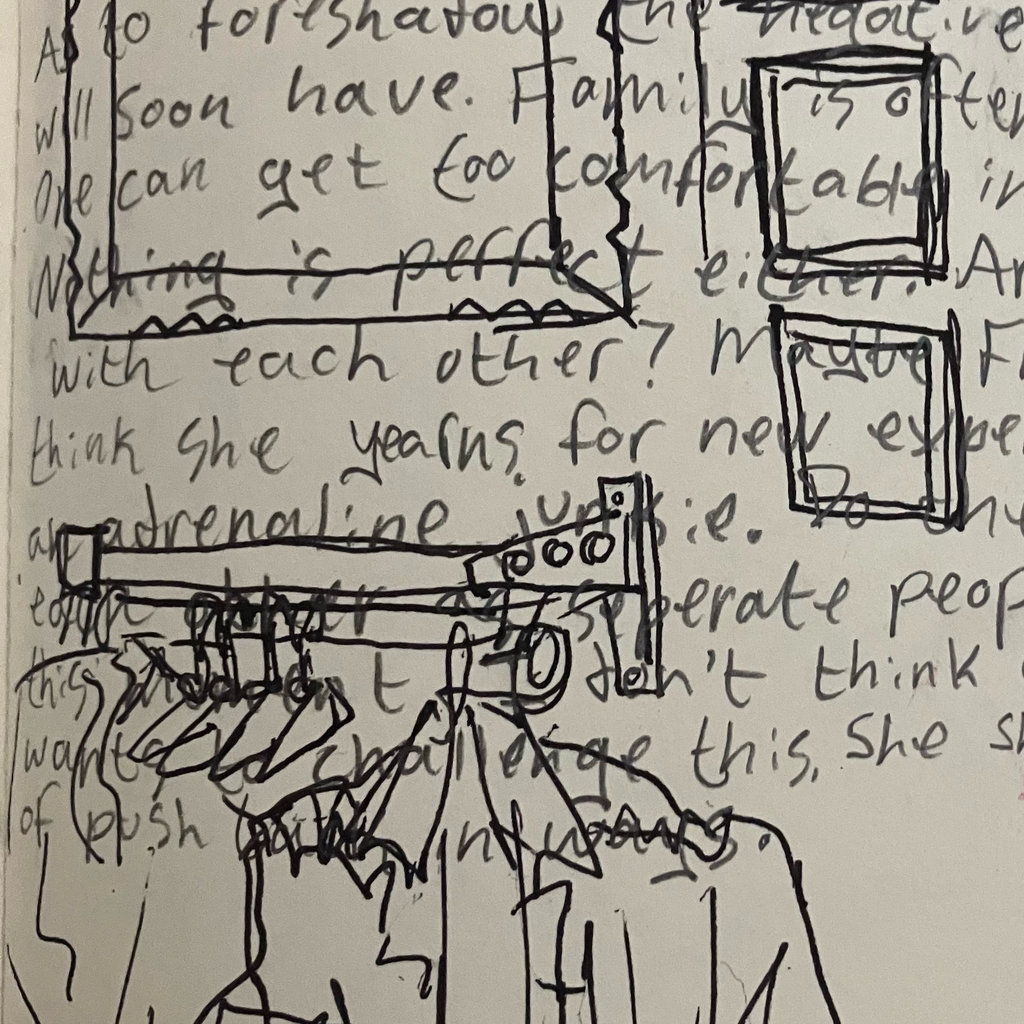 As to foreshadow the negative
will soon have. Family is often
One can get too comfortable in
Nothing is perfect either. Ar
with each other? Maybe Fr
think she yearns for new expe
an adrenaline junkie. Do the
each other as seperate peop
this don't think
wants to challenge this. She sh
of push in ways.